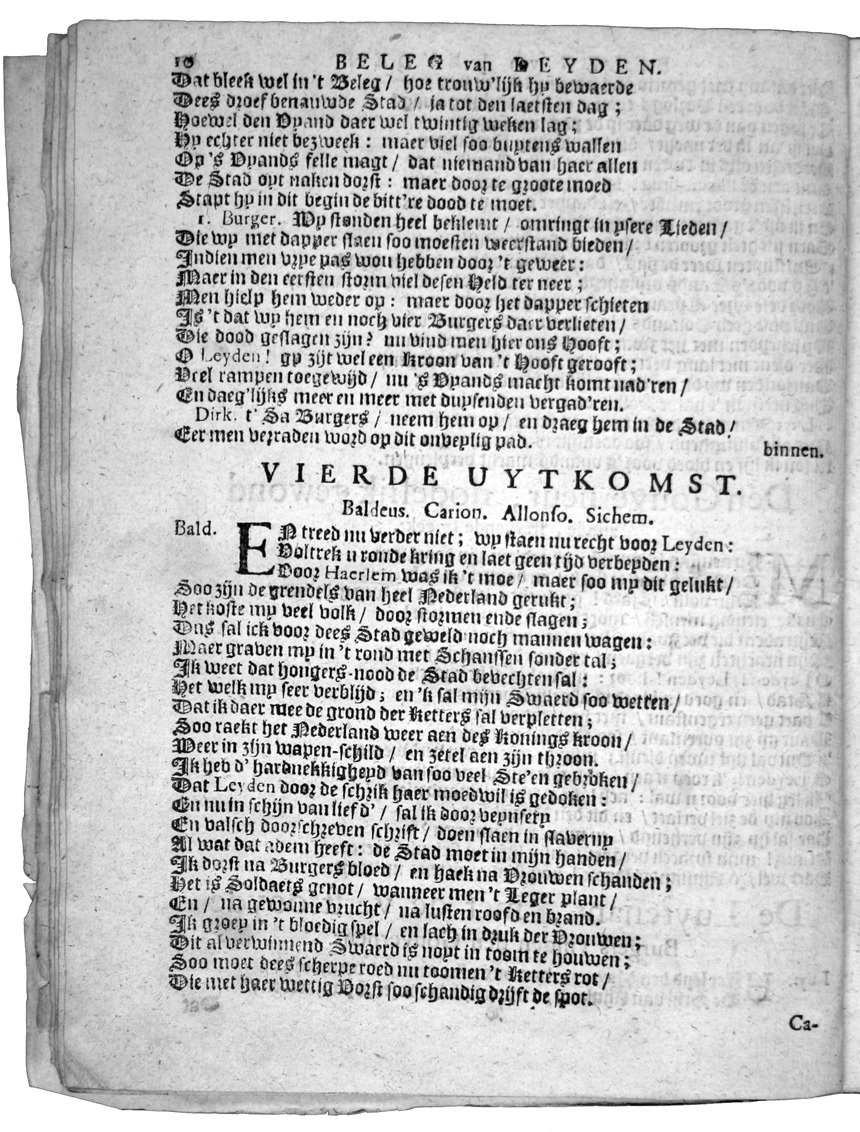 10 BELEG van LEYDEN.
Dat bleek wel in 't Beleg / hoe trouw'lijk hy bewaerde
Dees droef benauwde Stad / ja tot den laetsten dag ;
Hoewel den Vyand daer wel twintig weken lag ;
Hy echter niet bezweek : maer viel soo buytens wallen
Op 's Vyands felle magt / dat niemand van haer allen
De Stad oyt naken dorst : maer door te groote moed
Stapt hy in dit begin de bitt're dood te moet.
1. Burger. Wy stonden heel beklemt / omringt in ysere Lieden /
Die wy met dapper slaen soo moesten weerstand bieden /
Indien men vrye pas wou hebben door 't geweer :
Maer in den eersten storm viel desen Held ter neer ;
Men hielp hem weder op : maer door het dapper schieten
Is 't dat wy hem en noch vier Burgers daer verlieten /
Die dood geslagen zijn ? nu vind men hier ons Hooft ;
O Leyden ! gy zijt wel een Kroon van 't Hooft gerooft ;
Veel rampen toegewijd / nu 's Vyands macht komt nad'ren /
En daeg'lijks meer en meer met duysenden vergad'ren.
Dirk. t' Sa Burgers / neem hem op / en draeg hem in de Stad /
Eer men verraden word op dit onveylig pad.
binnen.
VIERDE UYTKOMST.
Baldeus. Carion. Allonso. Sichem.
Bald. EN treed nu verder niet ; wy staen nu recht voor Leyden :
Voltrek u ronde kring en laet geen tijd verbeyden :
Door Haerlem was ik 't moe / maer soo my dit gelukt /
Soo zijn de grendels van heel Nederland gerukt ;
Het koste my veel volk / door stormen ende slagen ;
Dus sal ick voor dees Stad geweld noch mannen wagen :
Maer graven my in 't rond met Schanssen sonder tal ;
Ik weet dat hongers-nood de Stad bevechten sal :
Het welk my seer verblijd ; en 'k sal mijn Swaerd soo wetten /
Dat ik daer mee de grond der Ketters sal verpletten ;
Soo raekt het Nederland weer aen des Konings kroon /
Weer in zijn wapen-schild / en zetel aen zijn throon.
Ik heb d' hardnekkigheyd van soo veel Ste'en gebroken /
Dat Leyden door de schrik haer moedwil is gedoken :
En nu in schijn van lief d' / sal ik door veynsery
En valsch doorschreven schrift / doen slaen in slaverny
Al wat dat adem heeft : de Stad moet in mijn handen /
Ik dorst na Burgers bloed / en haek na Vrouwen schanden ;
Het is Soldaets genot / wanneer men 't Leger plant /
En / na gewonne vrucht / na lusten roofd en brand.
Ik groey in 't bloedig spel / en lach in druk der Vrouwen ;
Dit al verwinnend Swaerd is noyt in toom te houwen ;
Soo moet dees scherpe roed nu toomen 't Ketters rot /
Die met haer wettig Vorst soo schandig drijft de spot.
Ca-